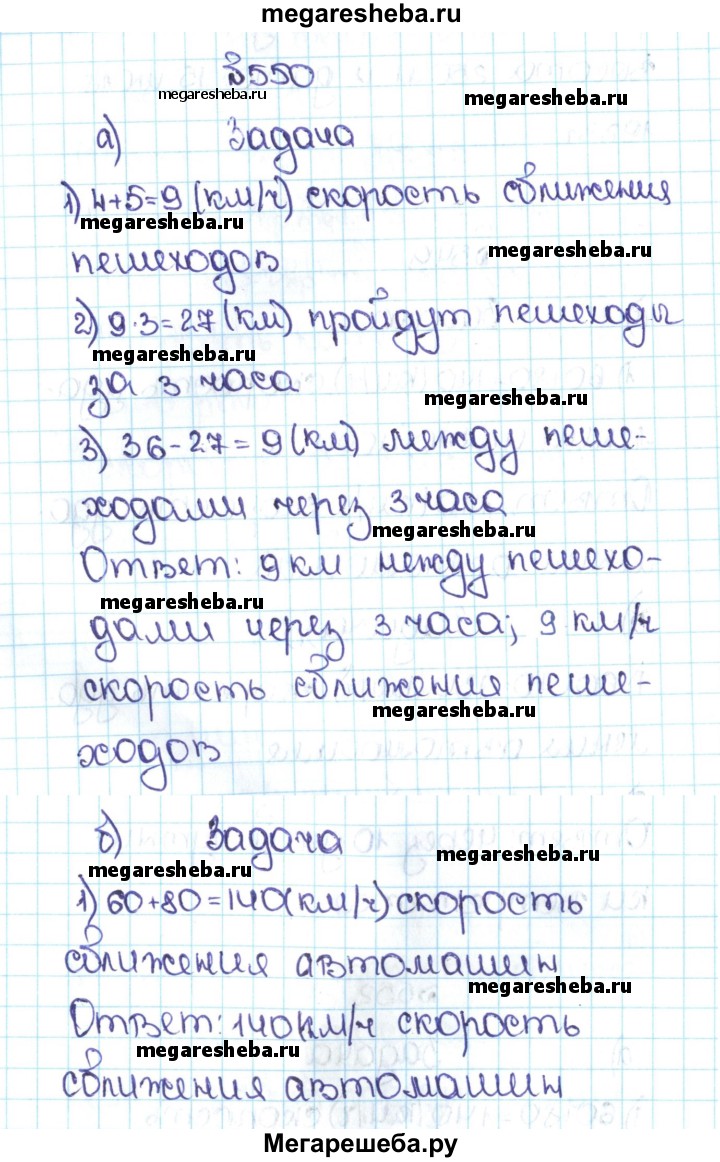 megaresheba.ru
№550
megaresheba.ru
megaresheba.ru
а) Задача
1) 4+5=9 (км/ч) скорость сближения
megaresheba.ru
пешеходов
megaresheba.ru
2) 9·3=27 (км) пройдут пешеходы
megaresheba.ru
за 3 часа
megaresheba.ru
3) 36-27=9 (км) между пеше-
ходами через 3 часа
megaresheba.ru
Ответ: 9 км между пешехо-
megaresheba.ru
дами через 3 часа; 9 км/ч
скорость сближения пеше-
megaresheba.ru
ходов
б) Задача
megaresheba.ru
megaresheba.ru
1) 60+80=140(км/ч) скорость
сближения автомашин
megaresheba.ru
Ответ: 140 км/ч скорость
megaresheba.ru
сближения автомашин
Мегарешеба.ру